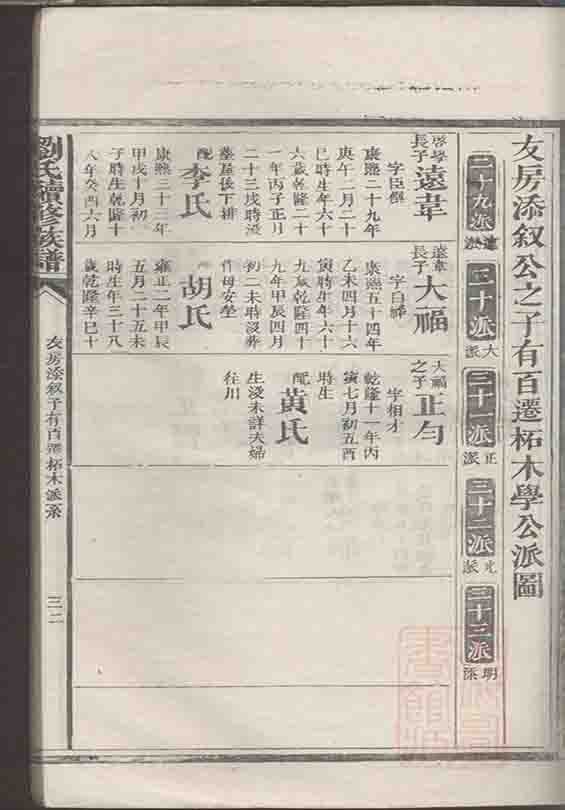 友房添叙公之子有百遷柘木學公派圖
二十九派 遠派
三十派 大派
三十一派 正派
三十二派 光派
三十三派 明派
啓學長子遠葦
字臣
康熙二十九年
庚午二月二十
巳時生年六十
六歲乾隆二十
一年丙子正月
二十三戌時没
葬屋後下排
配李氏
康熙三十三年
甲戌十月初
子時生乾隆十
八年癸酉六月
遠葦長子大福
字曰
康熙五十四年
乙未四月十六
寅時生年六十
九歲乾隆四十
九年甲辰四月
初二未時沒葬
母安塋
胡氏
雍正二年甲辰
五月二十五未
時生年三十八
歲乾隆辛巳十
大福之子正勻
字相才
乾隆十一年丙
寅七月初五酉
時生
配黃氏
生没未詳夫婦
往川
劉氏續修族譜
友房添叙子有百遷柘木派系
三二